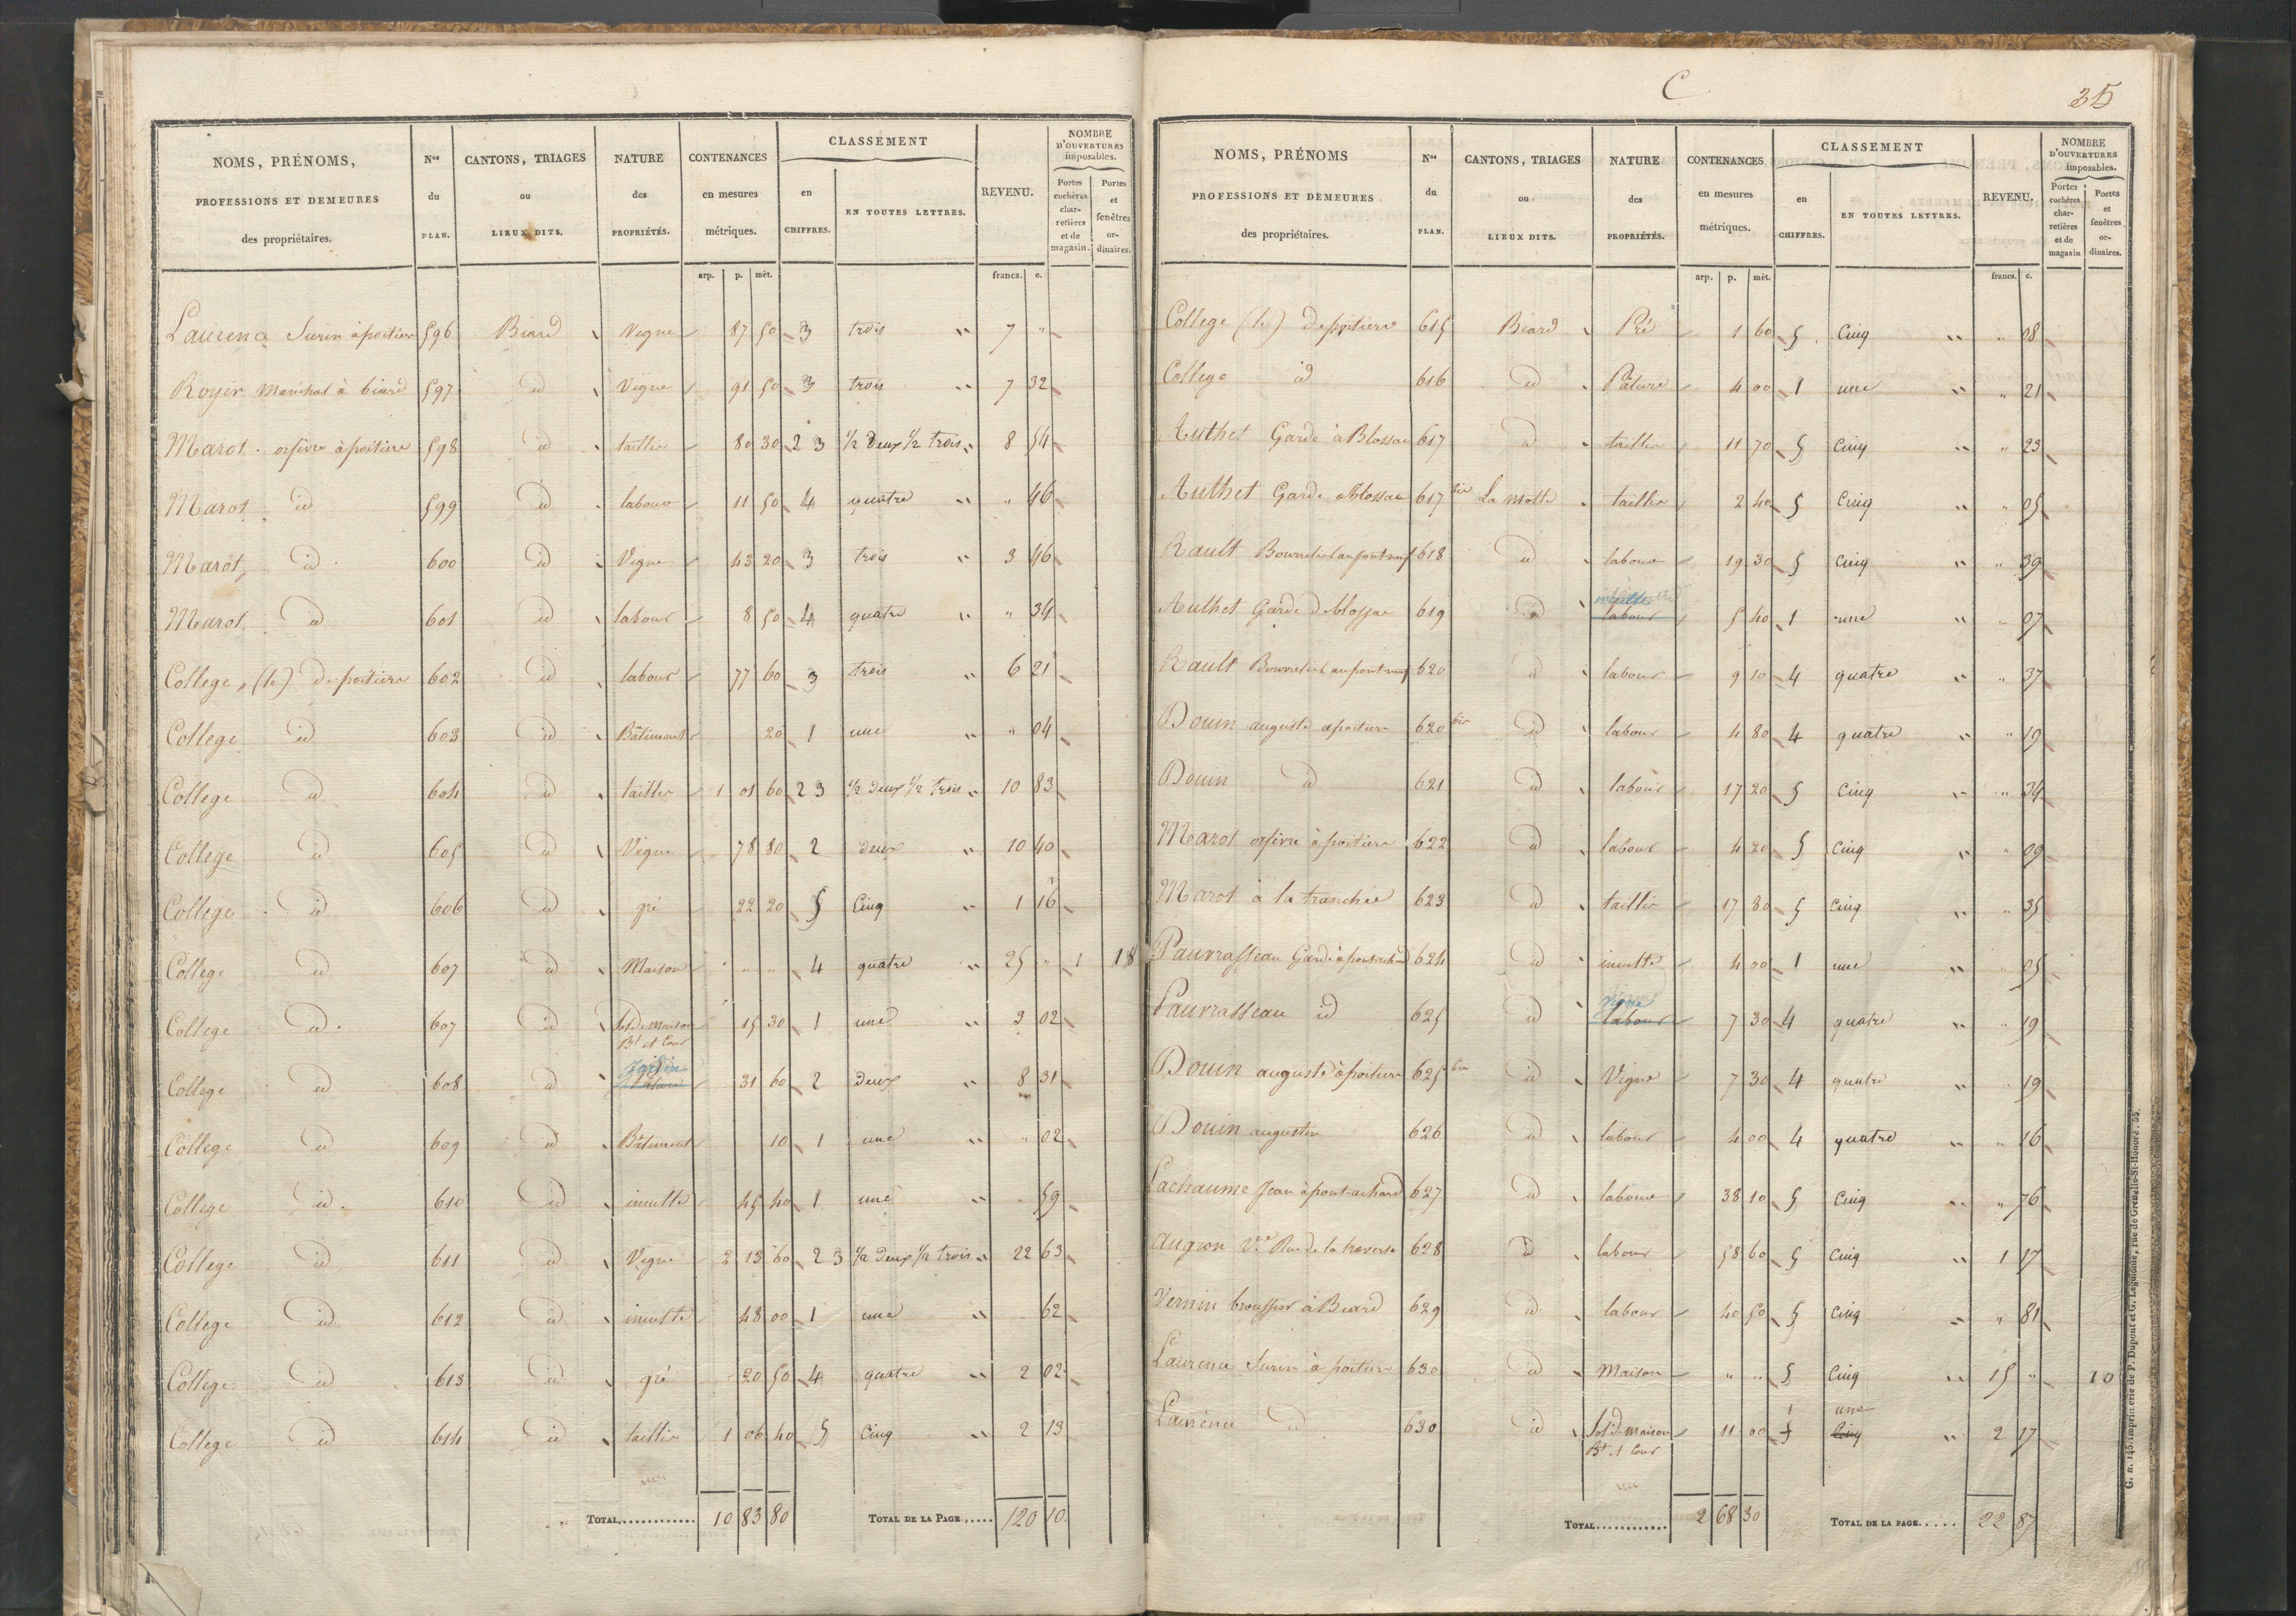 C
35
NOMS, PRÉNOMS, PROFESSIONS ET DEMEURES des propriétaires. | Nos du PLAN. | CANTONS, TRIAGES ou LIEUX DITS. | NATURE des PROPRIÉTÉS. | CONTENANCES en mesures métriques. | CLASSEMENT en CHIFFRES. | EN TOUTES LETTRES. | REVENU. | NOMBRE D'OUVERTURES imposables. Portes cochères charretières et de magasin. | Portes et fenêtres ordinaires.
arp. p. mèt. francs. c.
Laurence Surin à poitiers 596 Biard Vigne 87 50 3 trois " 7 "
Royer Maréchal à biard 597 id Vigne 91 50 3 trois " 7 32
Marot orfèvre à poitiers 598 id taillis 80 30 2 3 1/2 Deux 1/2 trois " 8 54
Marot id 599 id labour 11 50 4 quatre " " 46
Marot id 600 id Vigne 43 20 3 trois " 3 46
Marot id 601 id labour 8 50 4 quatre " " 34
College (le) de poitiers 602 id labour 77 60 3 trois " 6 21
College id 603 id Bâtiment 20 1 une " " 04
College id 604 id taillis 1 01 60 2 3 1/2 deux 1/2 trois " 10 83
College id 605 id Vigne 78 80 2 deux " 10 40
College id 606 id pré 22 20 5 Cinq " 1 16
College id 607 id Maison " " " 4 quatre " 25 " 1 18
College id 607 id Sol de maison Bt et Cour 15 30 1 une " 3 02
College id 608 id Jardin 31 60 2 Deux " 8 31
College id 609 id Bâtiment 10 1 une " " 02
College id 610 id inculte 45 40 1 une " " 59
College id 611 id Vigne 2 13 60 2 3 1/2 deux 1/2 trois " 22 63
College id 612 id inculte 48 00 1 une " 62
College id 613 id pré 20 50 4 quatre " 2 02
College id 614 id taillis 1 06 40 5 Cinq " 2 13
TOTAL............ 10 83 80 TOTAL DE LA PAGE..... 120 10
NOMS, PRÉNOMS PROFESSIONS ET DEMEURES des propriétaires. | Nos du PLAN. | CANTONS, TRIAGES ou LIEUX DITS. | NATURE des PROPRIÉTÉS. | CONTENANCES en mesures métriques. | CLASSEMENT en CHIFFRES. | EN TOUTES LETTRES. | REVENU. | NOMBRE D'OUVERTURES imposables. Portes cochères charretières et de magasin | Portes et fenêtres ordinaires.
arp. p. mèt. francs. c.
College (le) de poitiers 615 Biard Pré 1 60 5 Cinq " " 08
College id 616 id Pâture 4 00 1 une " " 21
Authet Garde à Blossac 617 id taillis 11 70 5 Cinq " " 23
Authet Garde Blossac 617 bis La motte taillis 2 40 5 Cinq " " 05
Rault Bourrelier au pont neuf 618 id labour 19 30 5 Cinq " " 39
Authet Garde de blossac 619 id labour 5 40 1 une " " 07
Rault Bourrelier au pont neuf 620 id labour 9 10 4 quatre " " 37
Douin auguste a poitiers 620 bis id labour 4 80 4 quatre " " 19
Douin id 621 id labour 17 20 5 Cinq " " 34
Marot orfèvre à poitiers 622 id labour 4 20 5 Cinq " " 09
Marot à la tranchée 623 id taillis 17 80 5 Cinq " " 35
Pauvrasseau Garde à pont achard 624 id inculte 4 00 1 une " " 05
Pauvrasseau id 625 id vigne labour 7 30 4 quatre " " 19
Douin auguste à poitiers 625 bis id Vigne 7 30 4 quatre " " 19
Douin auguste 626 id labour 4 00 4 quatre " " 16
Lachaume Jean à pont achard 627 id labour 38 10 5 Cinq " " 76
Augron Vve Rue de la traverse 628 id labour 58 60 5 Cinq " 1 17
Vernin à Biard 629 id labour 40 50 5 Cinq " " 81
Laurence Surin à poitiers 630 id Maison " " 5 Cinq " 15 " 10
Laurence id 630 id Sol de maison Bt et Cour 11 00 1 une Cinq " 2 17
TOTAL............ 2 68 30 TOTAL DE LA PAGE..... 22 87
G. n. 145. imprimerie de P. Dupont et G. Laguionie, rue de Grenelle-St-Honoré, 55.